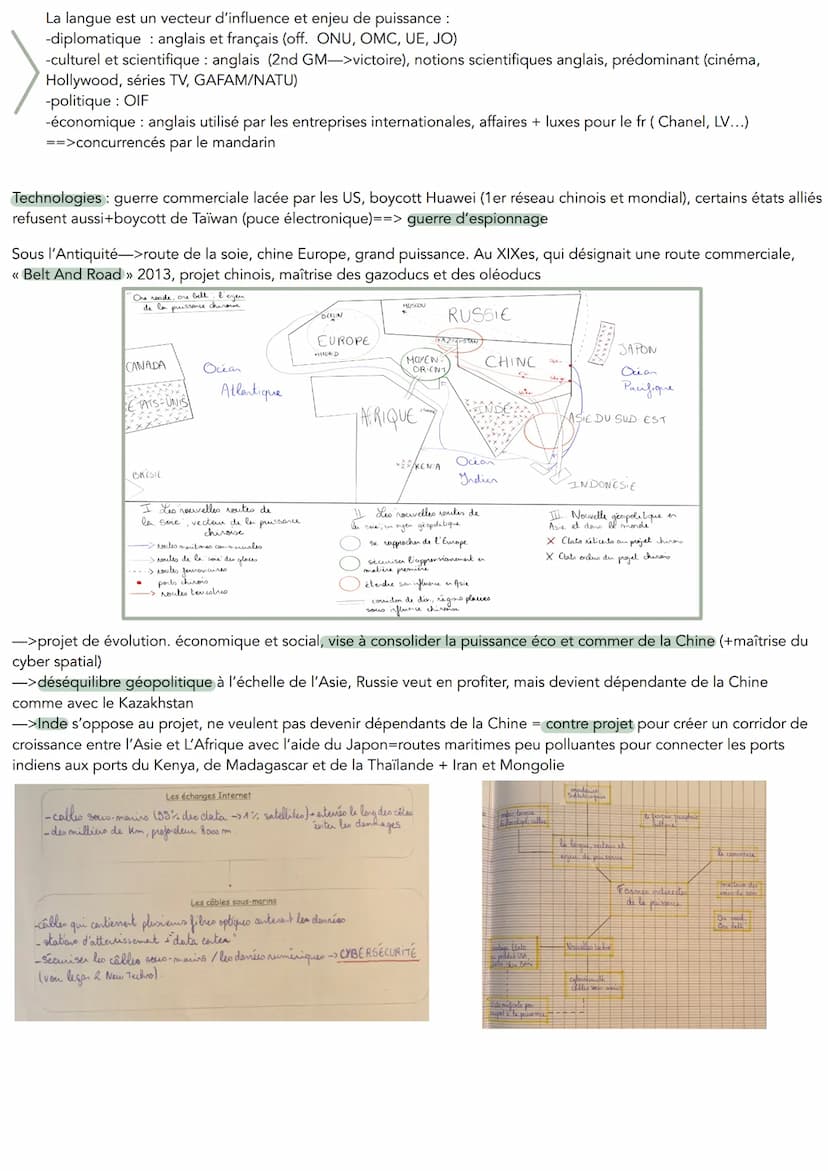 La langue est un vecteur d'influence et enjeu de puissance :
-diplomatique : anglais et français (off. ONU, OMC, UE, JO)
-culturel et scientifique : anglais (2nd GM—>victoire), notions scientifiques anglais, prédominant (cinéma,
Hollywood, séries TV, GAFAM/NATU)
-politique : OIF
-économique : anglais utilisé par les entreprises internationales, affaires + luxes pour le fr ( Chanel, LV…)
==>concurrencés par le mandarin
Technologies : guerre commerciale lacée par les US, boycott Huawei (1er réseau chinois et mondial), certains états alliés
refusent aussi+boycott de Taïwan (puce électronique)==> guerre d'espionnage
Sous l'Antiquité—>route de la soie, chine Europe, grand puissance. Au XIXes, qui désignait une route commerciale,
« Belt And Road » 2013, projet chinois, maîtrise des gazoducs et des oléoducs
One roade, one belt, l'enjeu
de la puissance chinoise
MOSCOU
RUSSIE
EUROPE
KAZAKHSTAN
MOYEN-
ORIENT
CHINE
JAPON
CANADA
Océan
Atlantique
Océan
Pacifique
ÉTATS-UNIS
AFRIQUE
INDE
ASIE DU SUD EST
KENIA
Océan
Indien
BRÉSIL
INDONÉSIE
I Les nouvelles routes de
la soie, vecteur de la puissance
chinoise
routes maritimes commerciales
routes de la soie des glaces
routes ferroviaires
ports chinois
routes terrestres
II Les nouvelles routes de
la soie, un enjeu géopolitique
se rapprocher de l'Europe
sécuriser l'approvisionnement en
matière première
étendre son influence en Asie
sous influence chinoise
III Nouvelle géopolitique en
Asie et dans le monde
X États réticents au projet chinois
X États exclus du projet chinois
—>projet de évolution. économique et social, vise à consolider la puissance éco et commer de la Chine (+maîtrise du
cyber spatial)
—>déséquilibre géopolitique à l'échelle de l'Asie, Russie veut en profiter, mais devient dépendante de la Chine
comme avec le Kazakhstan
—>Inde s'oppose au projet, ne veulent pas devenir dépendants de la Chine = contre projet pour créer un corridor de
croissance entre l'Asie et L'Afrique avec l'aide du Japon=routes maritimes peu polluantes pour connecter les ports
indiens aux ports du Kenya, de Madagascar et de la Thaïlande + Iran et Mongolie
Les échanges Internet
-câbles sous-marins (99% des data -> 1% satellites) + enterrés le long des côtes
éviter les dommages
-des milliers de km, profondeur 8000 m
Les câbles sous-marins
-câbles qui contiennent plusieurs fibres optiques contenant les données
-stations d'atterrissement + "data center"
-sécuriser les câbles sous-marins / les données numériques -> CYBERSÉCURITÉ
(voir leçon 2 New Techno)
la langue, vecteur et
enjeu de puissance
le commerce
Formes indirectes
de la puissance
Nouvelles techno
cybersécurité
câbles sous-marins